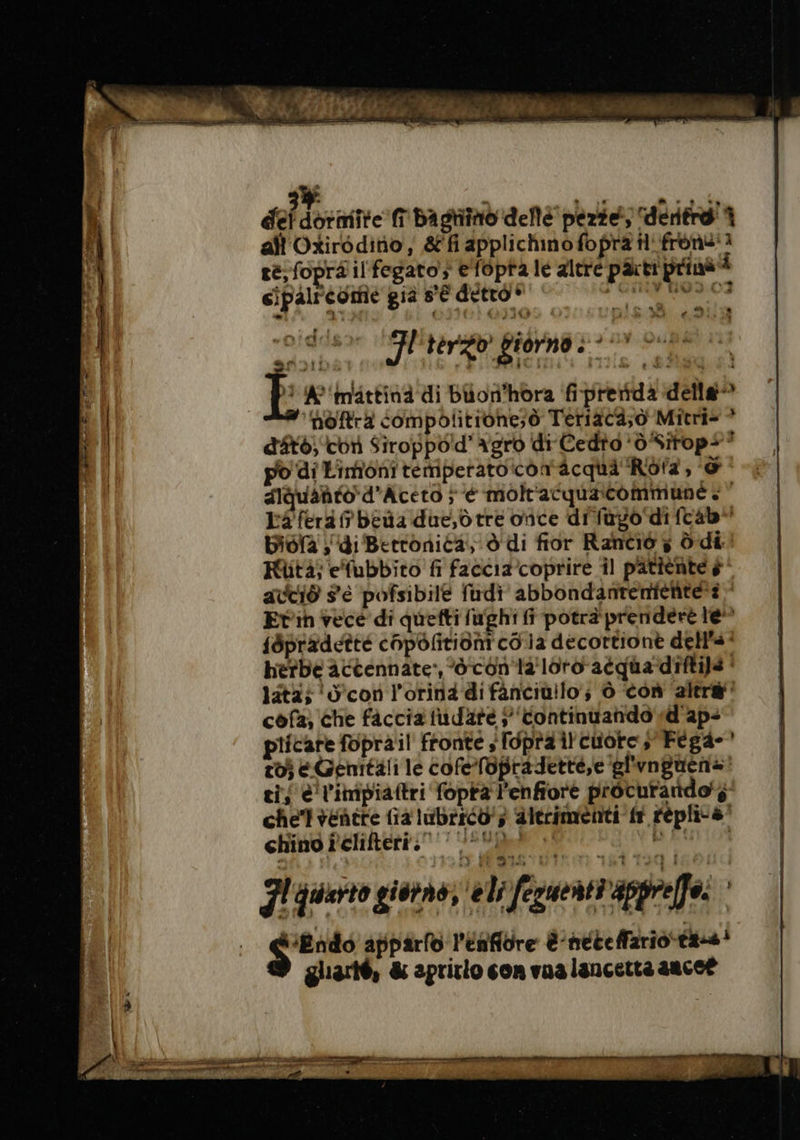 del dormire ſi bagnino delle pezze, dentro
all'Oxirodino, & ſi applichino ſopra il fron-
te, ſopra il fegato, e ſopra le altre parti prin-
cipali come già s'è detto.
Il terzo giorno.
LA mattina di buon'hora ſi prenda della
noſtra compoſitione, ò Teriaca, ò Mitri-
dato, con Siroppo d'agro di Cedro ò Sirop-
po di Limoni temperato con acqua Roſa, &
alquanto d'Aceto; e molt'acqua commune.
La ſera ſi beua due, ò tre once di ſugo di ſcab-
bioſa, di Bettonica, ò di fior Rancio, ò di
Ruta; e ſubbito ſi faccia coprire il patiente,
acciò s'è poſsibile ſudi abbondantemente.
Et in vece di queſti ſughi ſi potrà prendere le
ſopradette cōpoſitioni cō la decottione dell'
herbe accennate, ò con la loro acqua diſtil-
lata; ò con l'orina di fanciullo, ò con altra
coſa, che faccia ſudare, continuando d'ap-
plicare ſopra il fronte, ſopra il cuore, Fega-
to, e Genitali le coſe ſopradette, e gl'vnguen-
ti, e l'impiaſtri ſopra l'enfiore procurando,
che'l ventre ſia lubrico, altrimenti ſi repli-
chino i cliſteri.
Il quarto giorno, e li ſeguenti appreſſo.
SEndo apparſo l'enfiore è neceſſario ta-
gliarlo, & aprirlo con vna lancetta ancor